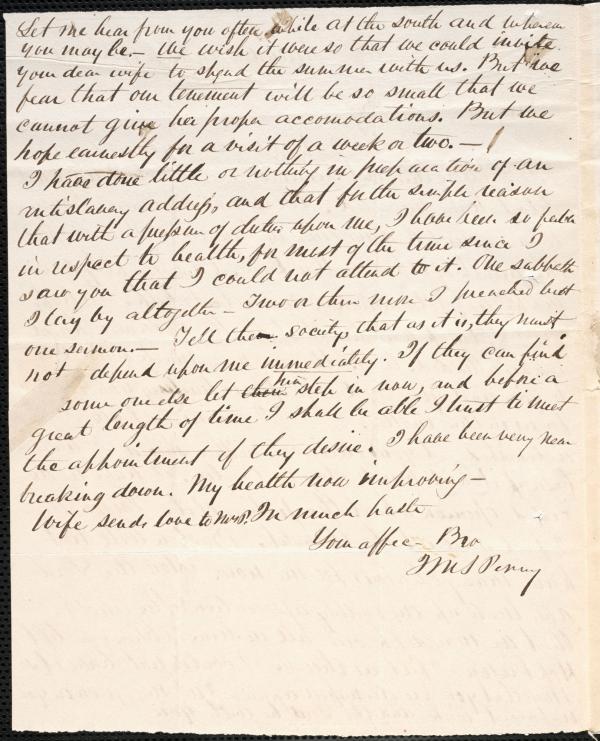 Let me hear from you often while at the south and wherever
you may be. — We wish it were so that we could invite
your dear wife to spend the summer with us. But we
fear that our tenement will be so small that we
cannot give her proper accomodations. But we
hope earnestly for a visit of a week or two. —
I have done little or nothing in preparation of an
antislavery address, and that for the simple reason
that with a pressure of duties upon me, I have been so feeble
in respect to health, for most of the time since I
saw you that I could not attend to it. One sabbath
I lay by altogether — Two or three more I preached but
one sermon. — Tell the society, that as it is, they must
not depend upon me immediately. If they can find
some one else let him step in now, and before a
great length of time I shall be able I trust to meet
the appointment if they desire. I have been very near
breaking down. My health now improving —
Wife sends love to Mrs P. In much haste
Your affec — Bro
J M S Perry